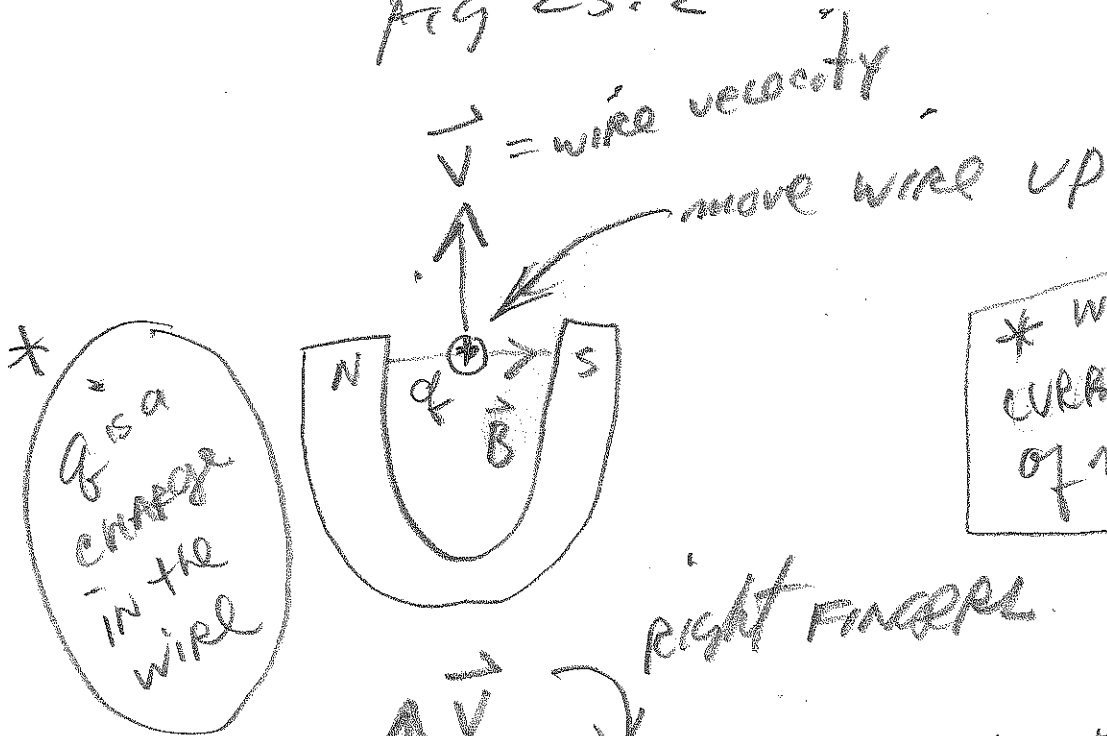 Fig 25.2
V = wire velocity
move wire up
*
q is a
charge
in the
wire
N
*
S
q
B
* W
curr
of
right fingers
V